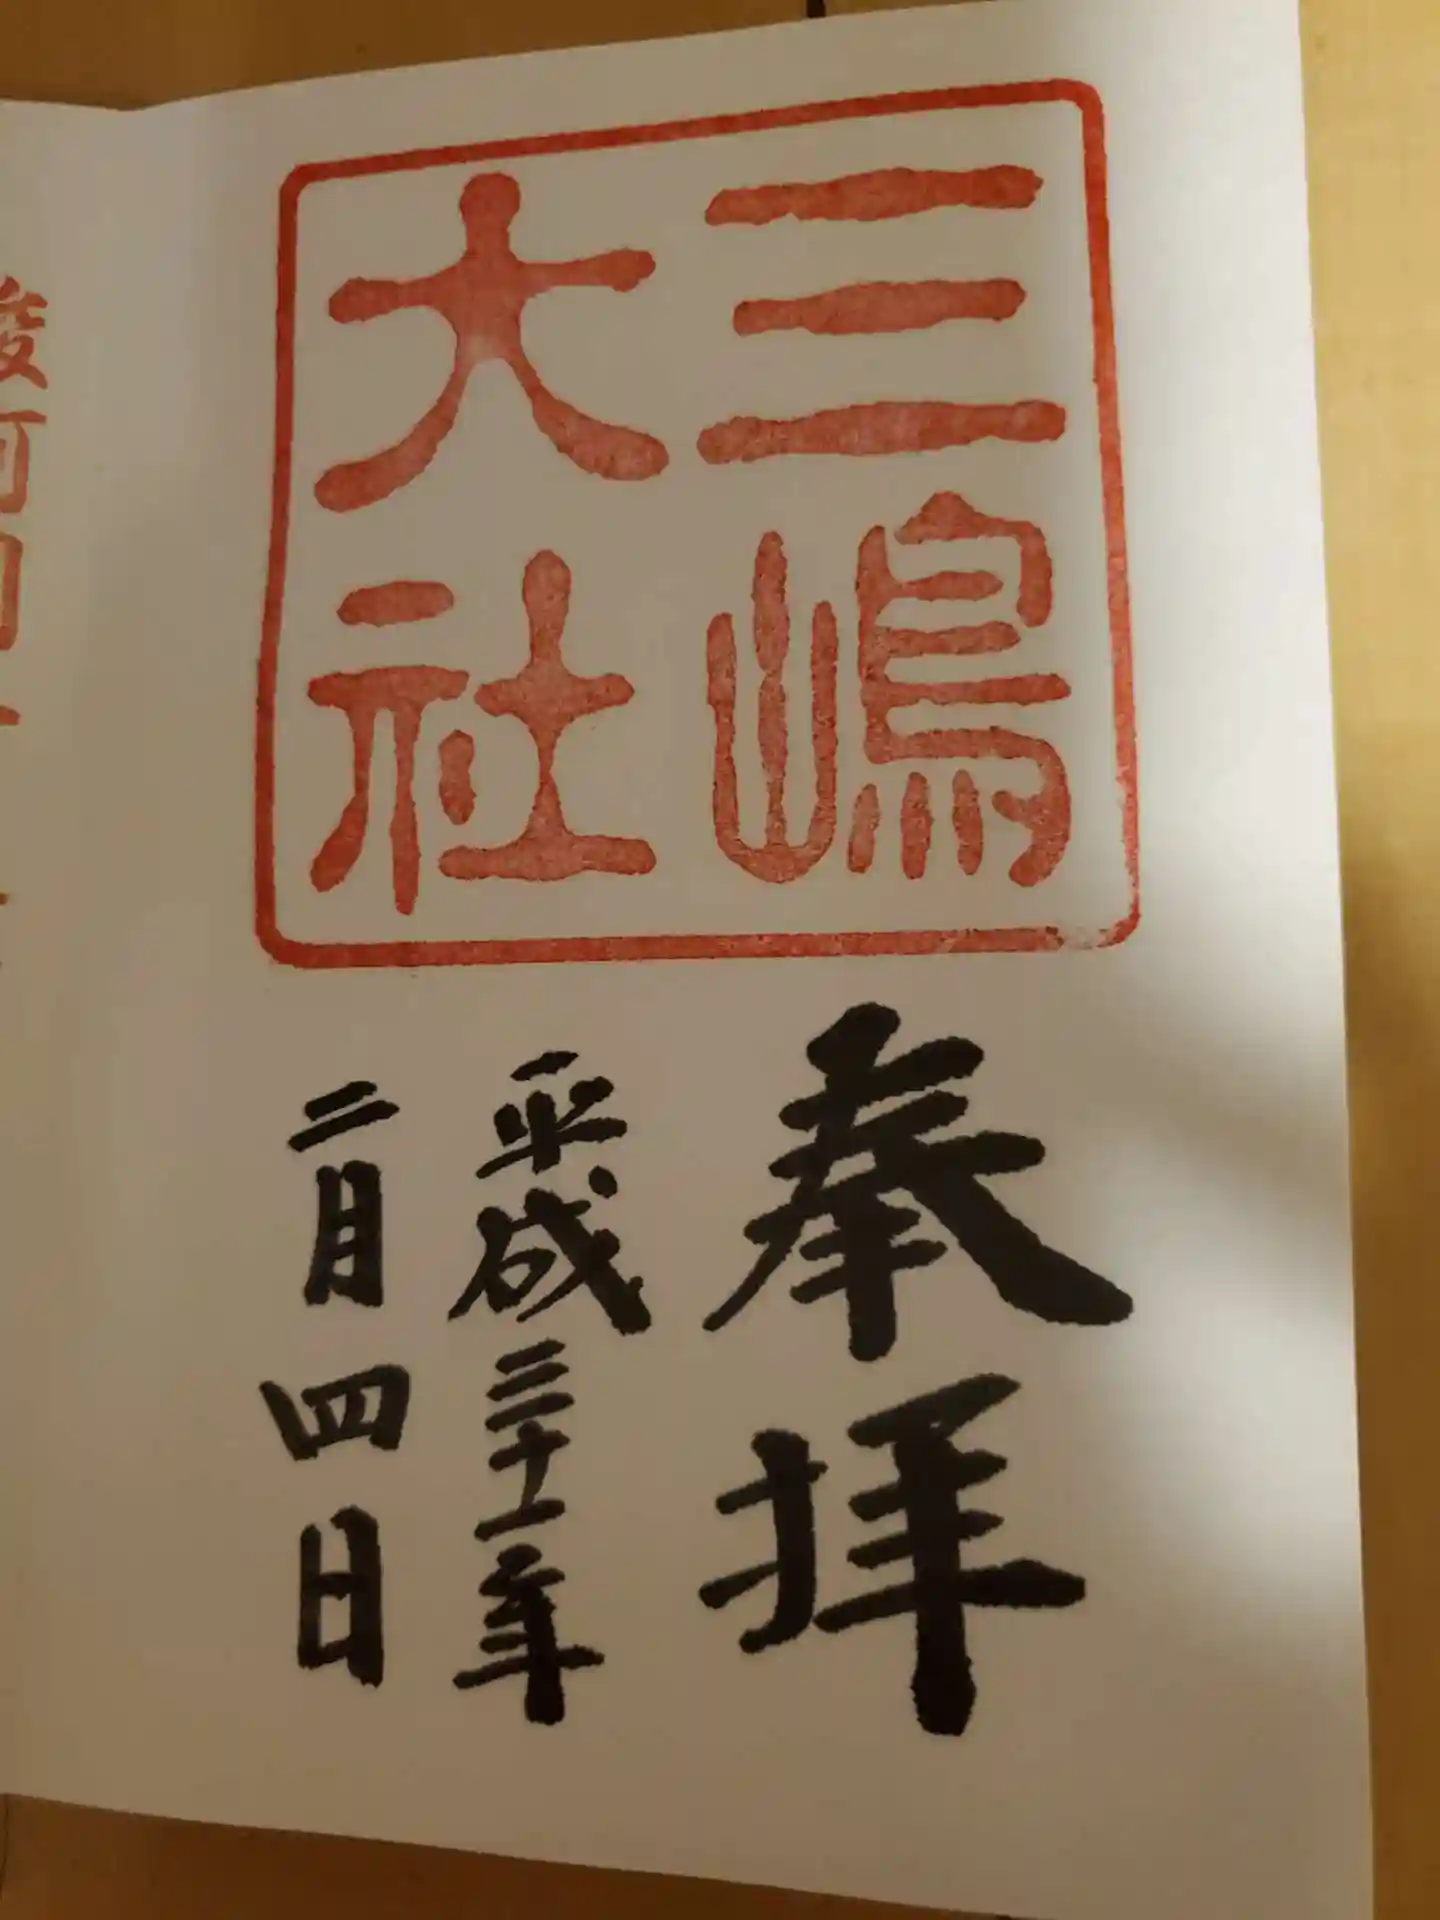 三嶋
大社
奉拝
平成三十一年
二月四日
駿河国